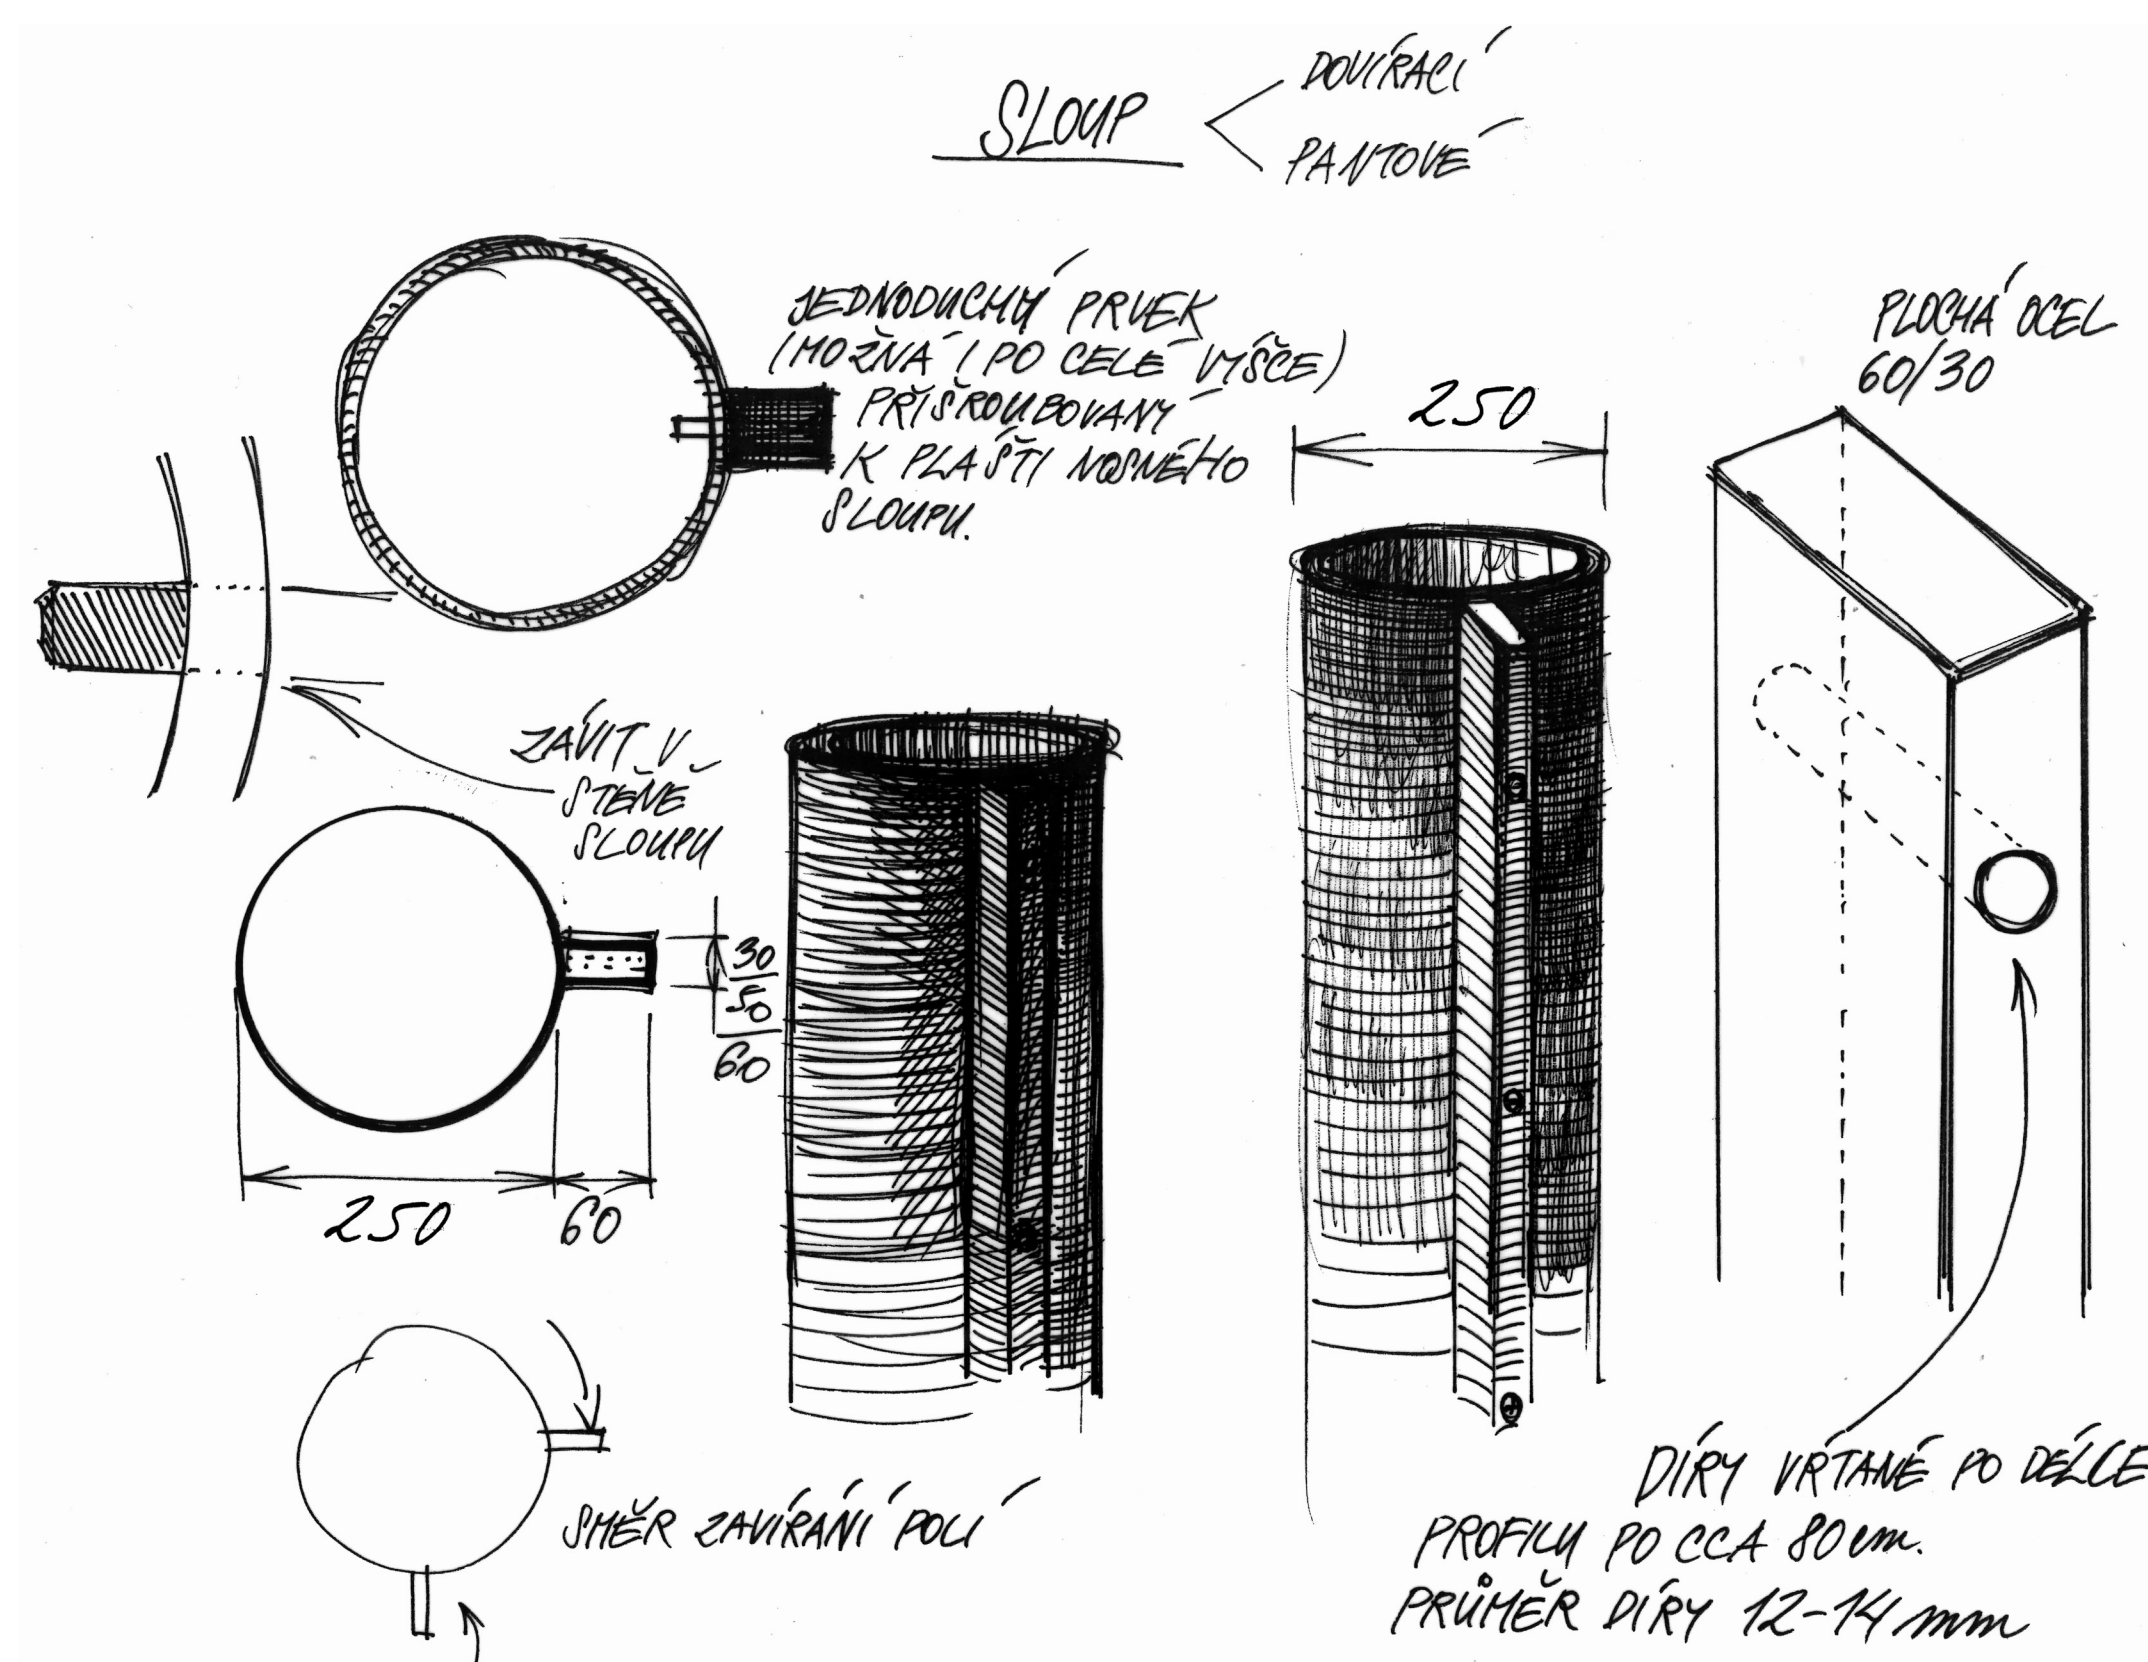 SLOUP
DOVÍRACÍ
PANTOVÉ
JEDNODUCHÝ PRVEK
(MOŽNÁ I PO CELÉ VÝŠCE)
PŘIŠROUBOVANÝ
K PLÁŠTI NOSNÉHO
SLOUPU.
PLOCHÁ OCEL
60/30
250
ZÁVIT V
STĚNĚ
SLOUPU
30
50
60
250
60
SMĚR ZAVÍRÁNÍ POLÍ
DÍRY VRTANÉ PO DÉLCE
PROFILU PO CCA 80 cm.
PRŮMĚR DÍRY 12-14 mm